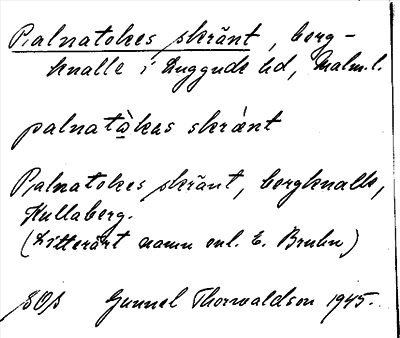 Palnatokes skränt, berg-
knalle i Luggude hd, Malm.l.
palnatò̱kas skrä̀nt
Palnatokes skränt, bergknalle,
Kullaberg.
(Litterärt namn enl. E. Bruhn)
Gunnel Thorwaldson 1945.